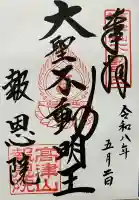 奉拝
令和八年
五月二日
大聖不動明王
報恩院
高津山
報恩院